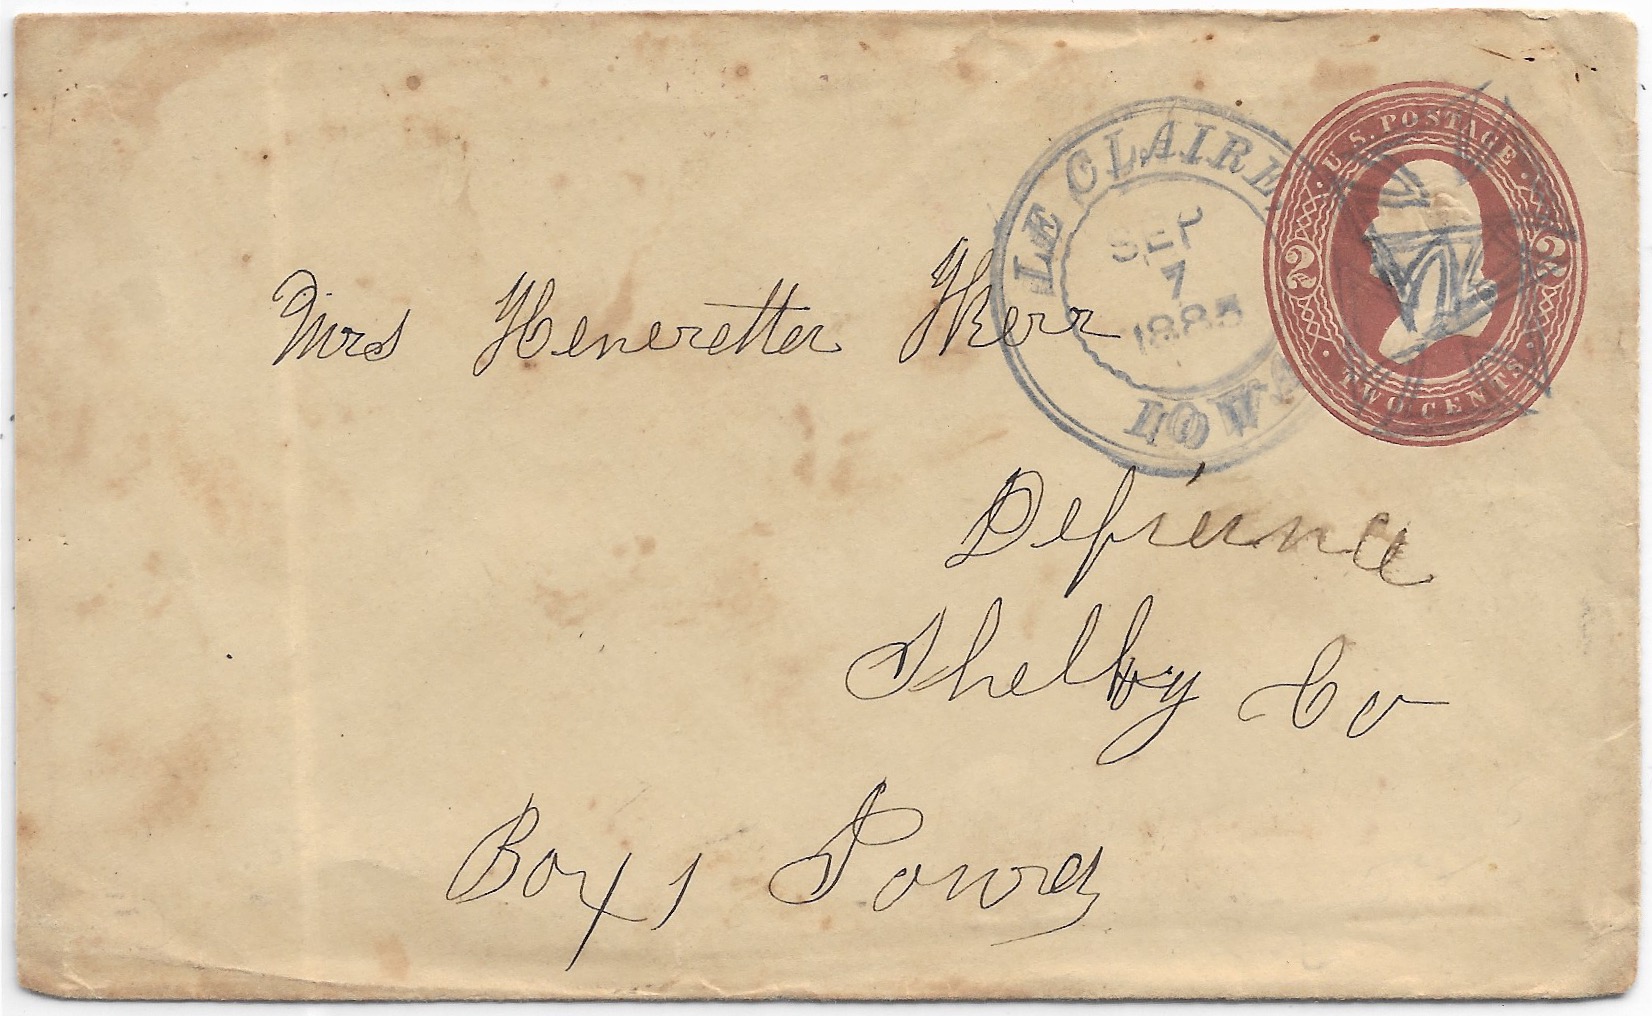 LE CLAIRE
SEP
7
1885
IOWA
U.S. POSTAGE
2 2
TWO CENTS
Mrs Heneretter Kerr
Defience
Shelby Co
Box 1 Iowa